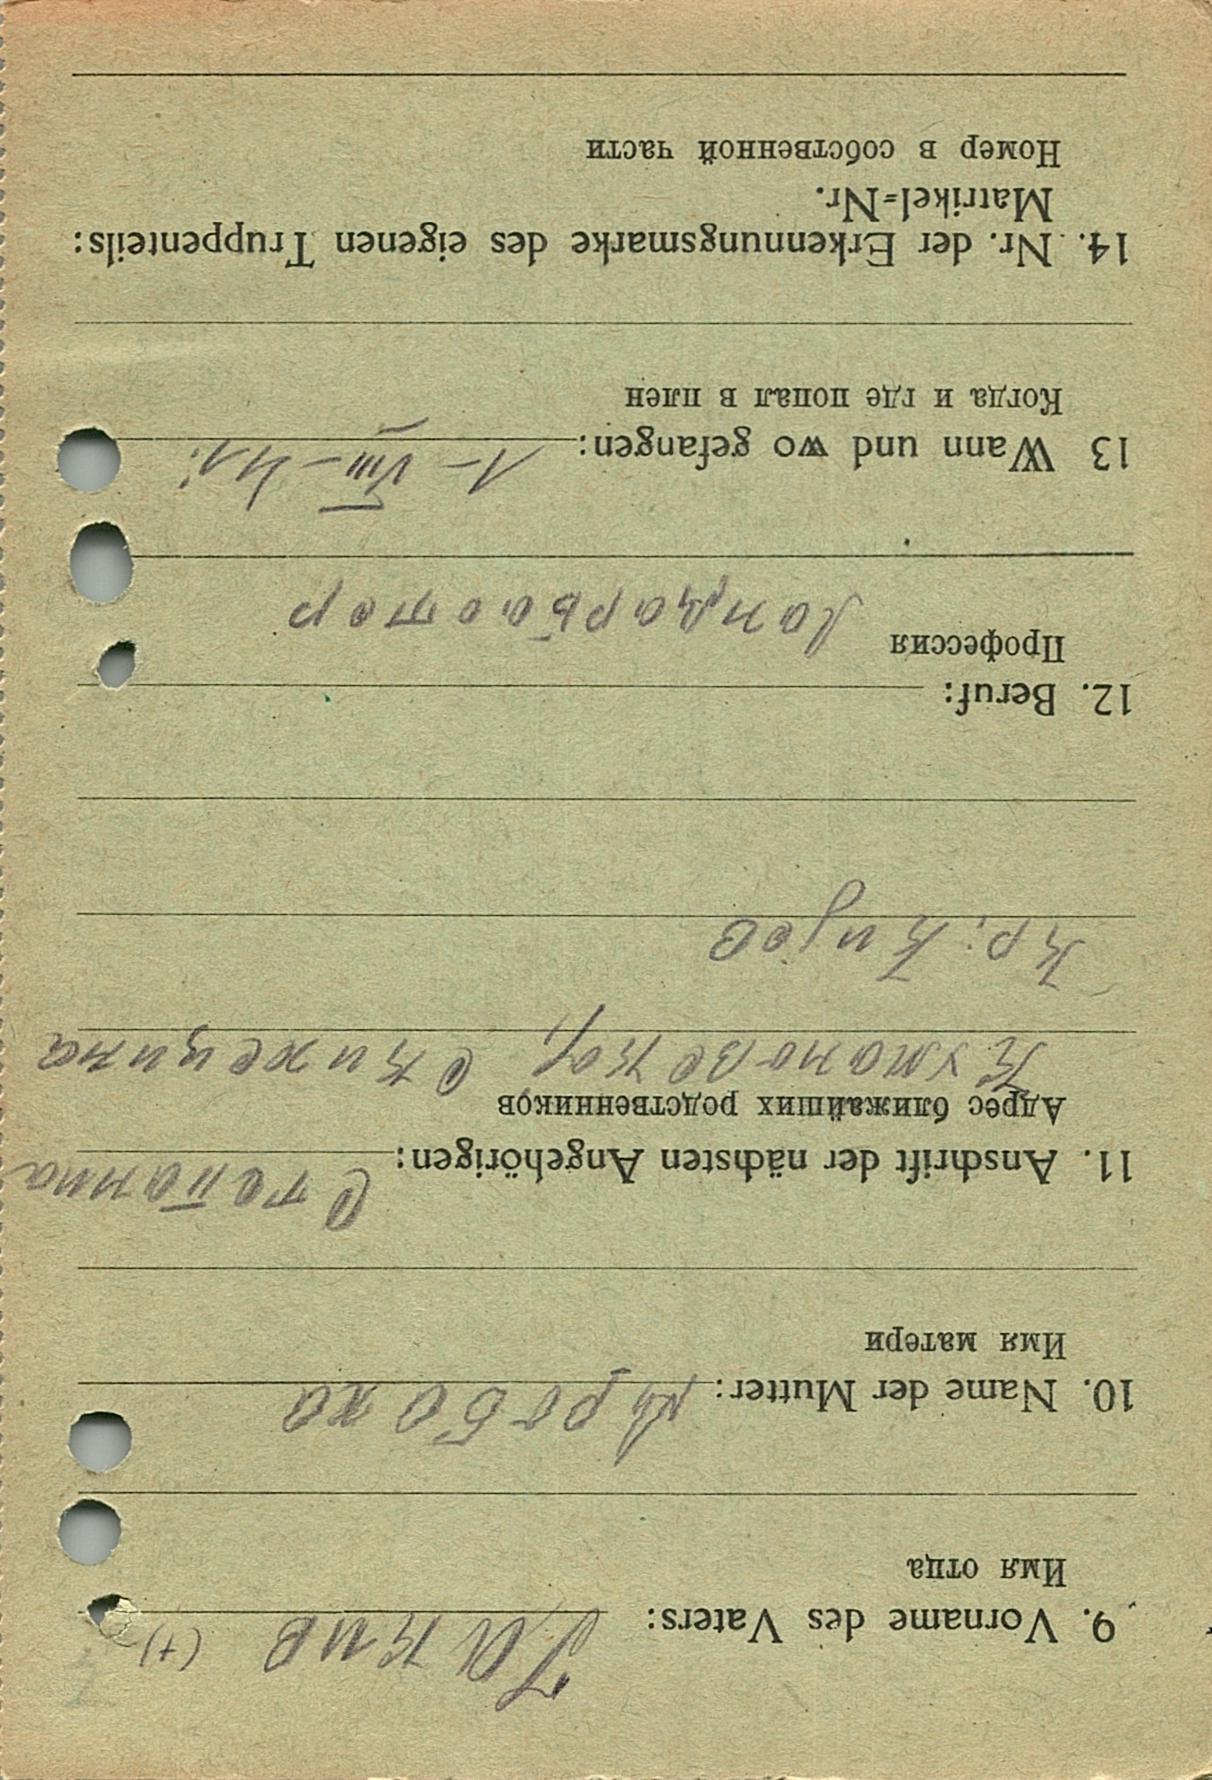 9. Vorname des Vaters: Якив (+)
Имя отца
10. Name der Mutter:
Имя матери
11. Anschrift der nächsten Angehörigen: Степанна
Адрес ближайших родственников
Скижецина
кр. Кијев
12. Beruf:
Профессия Ландарбаотер
13 Wann und wo gefangen: 1-VIII-41.
Когда и где попал в плен
14. Nr. der Erkennungsmarke des eigenen Truppenteils:
Matrikel=Nr.
Номер в собственной части